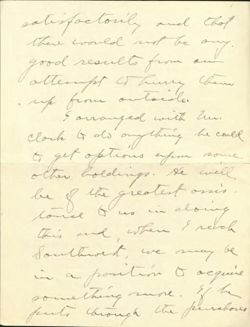 satisfactorily and that
there would not be any
good results from an
attempt to hurry them
up from outside.
I arranged with Mr.
Clark to do anything he could
to get options upon some
other holdings. He will
be of the greatest assis-
tance to us in doing
this and, when I reach
Southwest, we may be
in a position to acquire
something more. If he
puts through the purchases